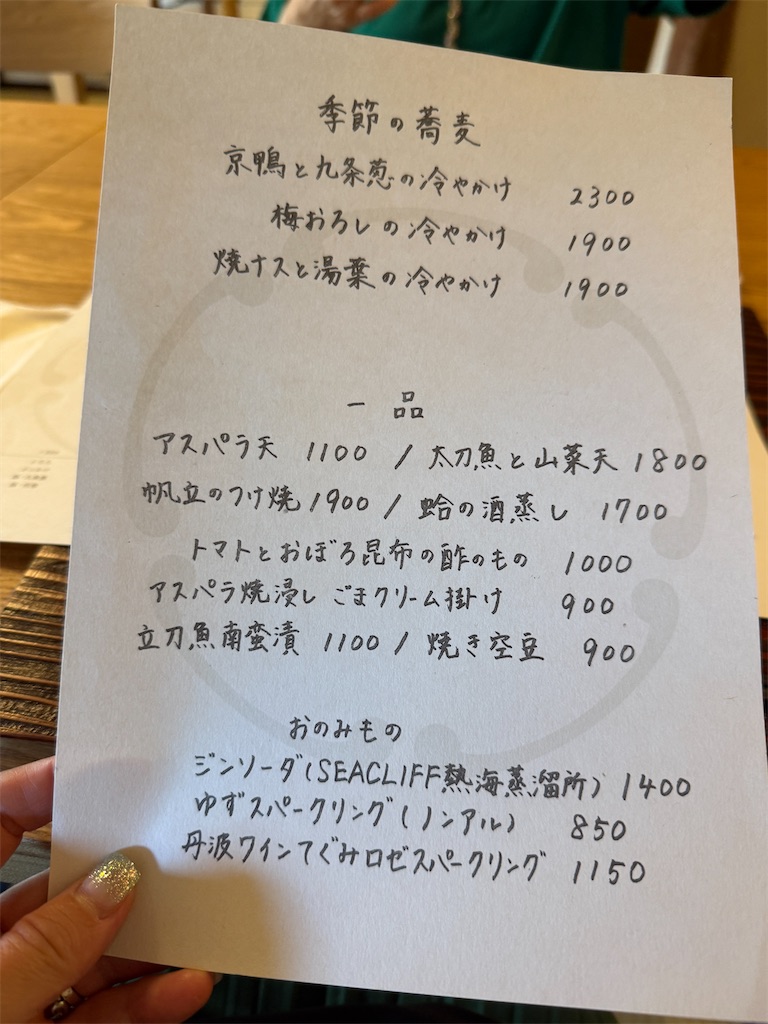 季節の蕎麦
京鴨と九条葱の冷やかけ 2300
梅おろしの冷やかけ 1900
焼ナスと湯葉の冷やかけ 1900
一品
アスパラ天 1100 / 太刀魚と山菜天 1800
帆立のつけ焼 1900 / 蛤の酒蒸し 1700
トマトとおぼろ昆布の酢のもの 1000
アスパラ焼浸し ごまクリーム掛け 900
立刀魚南蛮漬 1100 / 焼き空豆 900
おのみもの
ジンソーダ(SEACLIFF熱海蒸溜所) 1400
ゆずスパークリング(ノンアル) 850
丹波ワインてぐみロゼスパークリング 1150